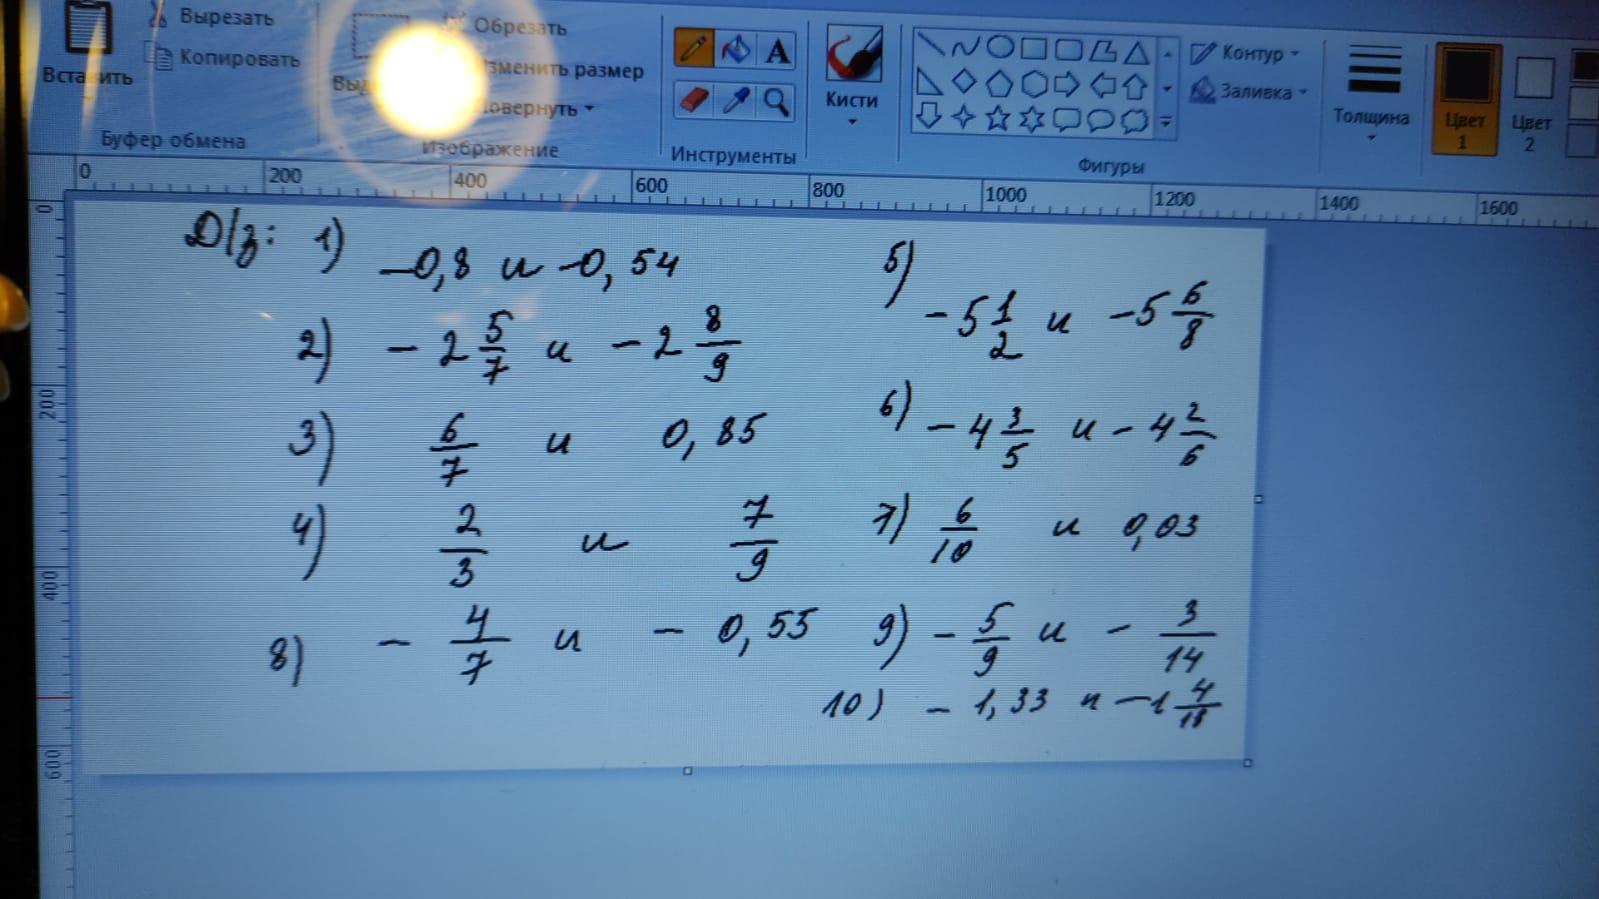 Вырезать
Копировать
Вставить
Буфер обмена
Обрезать
Изменить размер
Повернуть
Изображение
A
Инструменты
Кисти
Контур
Заливка
Фигуры
Толщина
Цвет 1
Цвет 2
0 200 400 600 800 1000 1200 1400 1600
0
200
400
600
Д/з: 1) -0,8 и -0,54
2) -2 5/7 и -2 8/9
3) 6/7 и 0,85
4) 2/3 и 7/9
8) - 4/7 и - 0,55
5) -5 1/2 и -5 6/8
6) -4 3/5 и -4 2/6
7) 6/10 и 0,03
9) - 5/9 и - 3/14
10) - 1,33 и -1